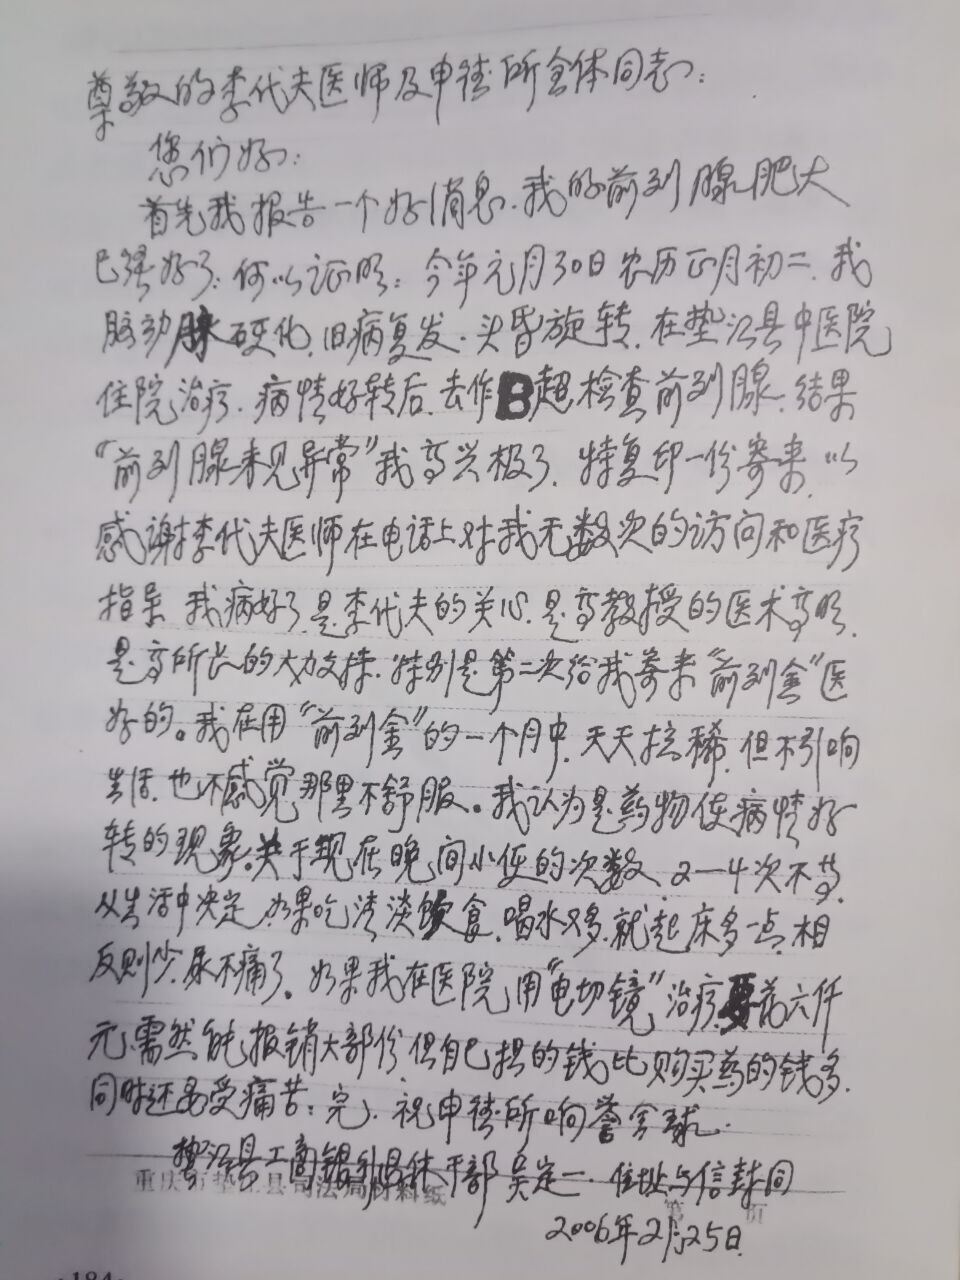 尊敬的李代夫医师及申街所全体同志：
您们好：
首先我报告一个好消息.我的前列腺肥大
已经好了：何以证明：今年元月30日农历正月初二.我
脑动脉硬化.旧病复发.头昏旋转.在垫江县中医院
住院治疗.病情好转后.去作B超检查前列腺.结果
“前列腺未见异常”我高兴极了.特复印一份寄来.以
感谢李代夫医师在电话上对我无数次的访问和医疗
指导.我病好了.是李代夫的关心.是高教授的医术高明.
是高所长的大力支持.特别是第二次给我寄来“前列金”医
好的。我在用“前列金”的一个月中.天天拉稀.但不引响
生活.也不感觉那里不舒服。我认为是药物使病情好
转的现象。关于现在晚间小便的次数.2—4次不等.
从生活中决定.如果吃清淡饮食.喝水又多.就起床多一点.相
反则少.尿不痛了。如果我在医院用“电切镜”治疗.要花六仟
元.需然能报销大部份但自己担的钱比购买药的钱多.
同时还易受痛苦：完.祝申街所响誉全球.
垫江县工商银行退休干部吴定一.住址与信封同
重庆市垫江县司法局材料纸
第 页
2006年2月25日
·184·